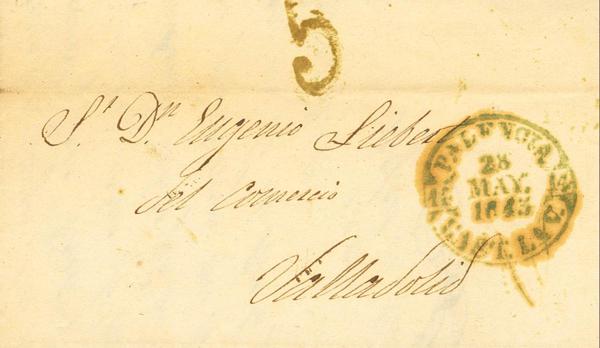 5
Sr. Dn. Eugenio
del Comercio
Valladolid
PALENCIA
28
MAY.
1845
CAST. LA V.